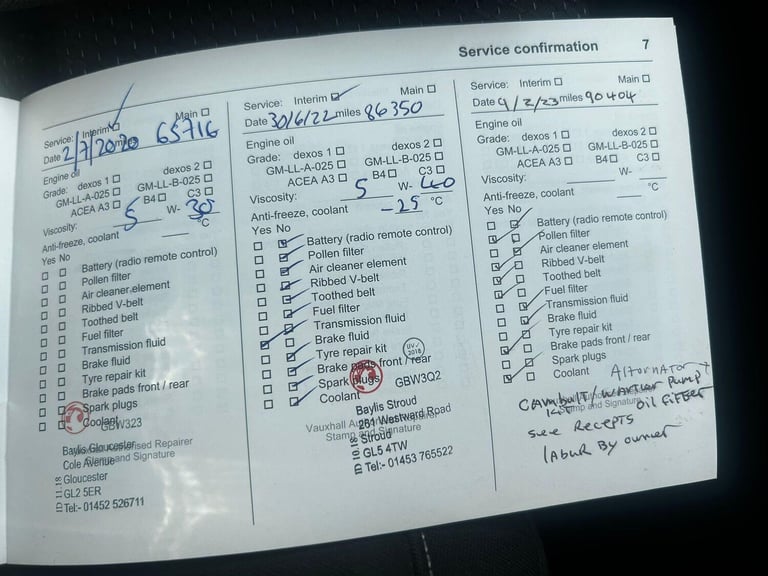 Service confirmation 7
Service: Interim Main
Date 2/7/2020 miles 65716
Engine oil
Grade: dexos 1 dexos 2
GM-LL-A-025 GM-LL-B-025
ACEA A3 B4 C3
Viscosity: 5 W- 30
Anti-freeze, coolant °C
Yes No
Battery (radio remote control)
Pollen filter
Air cleaner element
Ribbed V-belt
Toothed belt
Fuel filter
Transmission fluid
Brake fluid
Tyre repair kit
Brake pads front / rear
Spark plugs
Coolant
GBW323
Baylis Gloucester
Cole Avenue
Stamp and Signature
Gloucester
GL2 5ER
Tel:- 01452 526711
Service: Interim Main
Date 30/6/22 miles 86350
Engine oil
Grade: dexos 1 dexos 2
GM-LL-A-025 GM-LL-B-025
ACEA A3 B4 C3
Viscosity: 5 W- 40
Anti-freeze, coolant -25 °C
Yes No
Battery (radio remote control)
Pollen filter
Air cleaner element
Ribbed V-belt
Toothed belt
Fuel filter
Transmission fluid
Brake fluid
Tyre repair kit
Brake pads front / rear
Spark plugs
Coolant
GBW3Q2
Baylis Stroud
Vauxhall
261 Westward Road
Stamp and Signature
Stroud
GL5 4TW
Tel:- 01453 765522
Service: Interim Main
Date 9/2/23 miles 90404
Engine oil
Grade: dexos 1 dexos 2
GM-LL-A-025 GM-LL-B-025
ACEA A3 B4 C3
Viscosity: W-
Anti-freeze, coolant °C
Yes No
Battery (radio remote control)
Pollen filter
Air cleaner element
Ribbed V-belt
Toothed belt
Fuel filter
Transmission fluid
Brake fluid
Tyre repair kit
Brake pads front / rear
Spark plugs
Coolant
Alternator
Pump
Stamp and Signature
oil
see Recepts
labur By owner